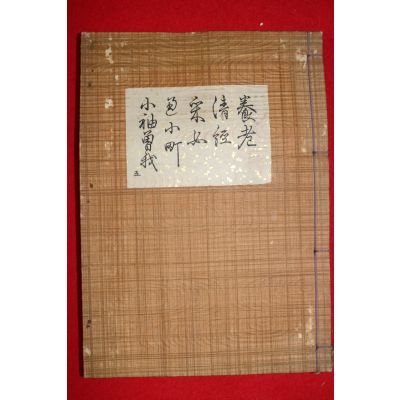 養老
清經
采女
通小町
小袖曽我
五